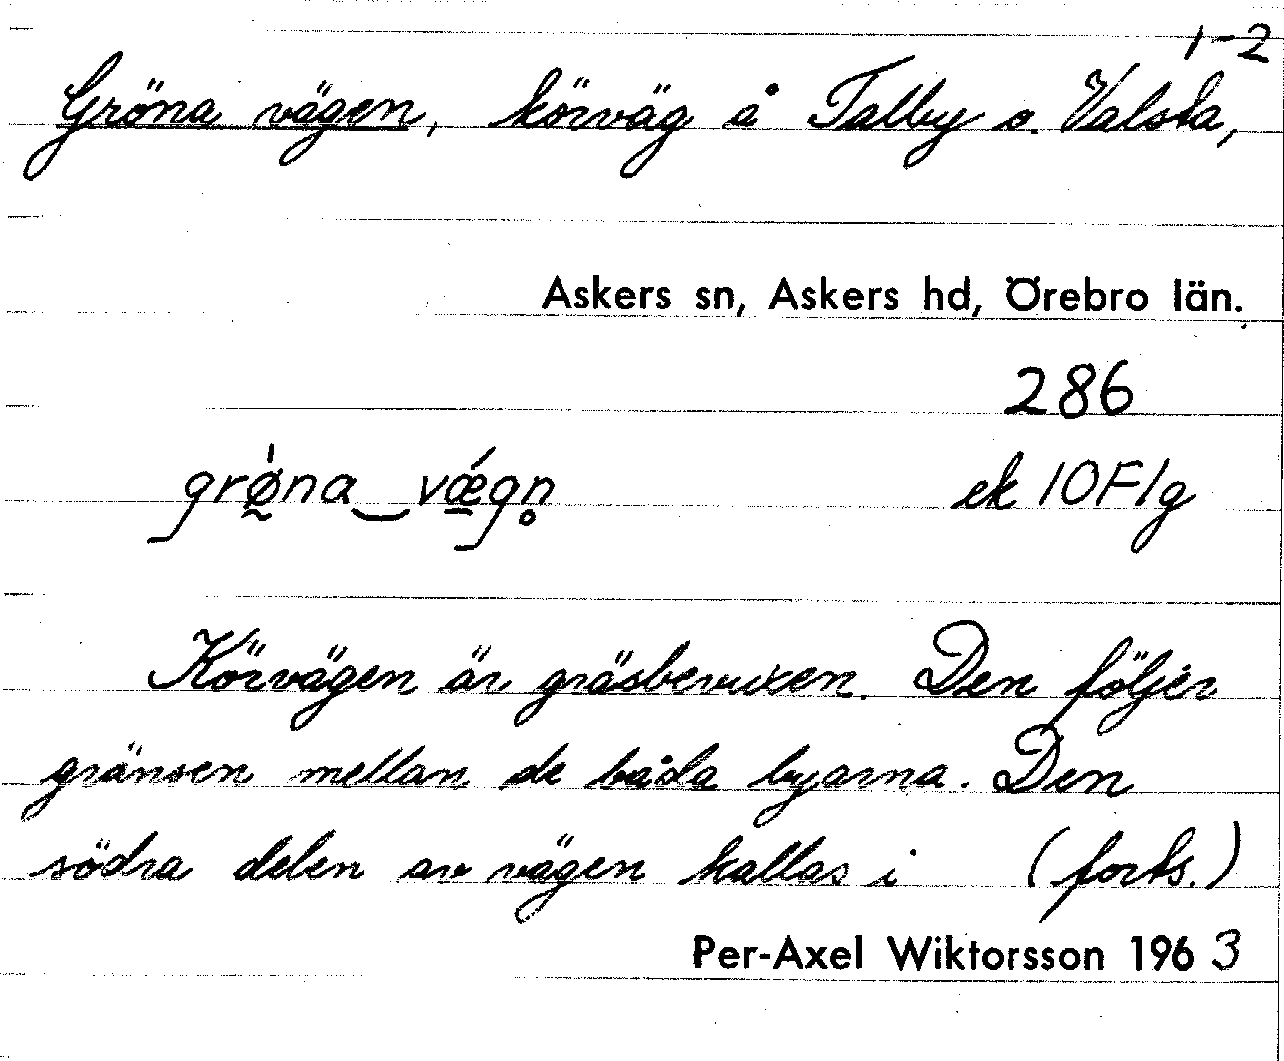 1-2
Gröna vägen, körväg å Talby o. Valsta,
Askers sn, Askers hd, Örebro län.
286
grø̀na‿vǽgn̥ ek 10F1g
Körvägen är gräsbevuxen. Den följer
gränsen mellan de båda byarna. Den
södra delen av vägen kallas i (forts.)
Per-Axel Wiktorsson 1963